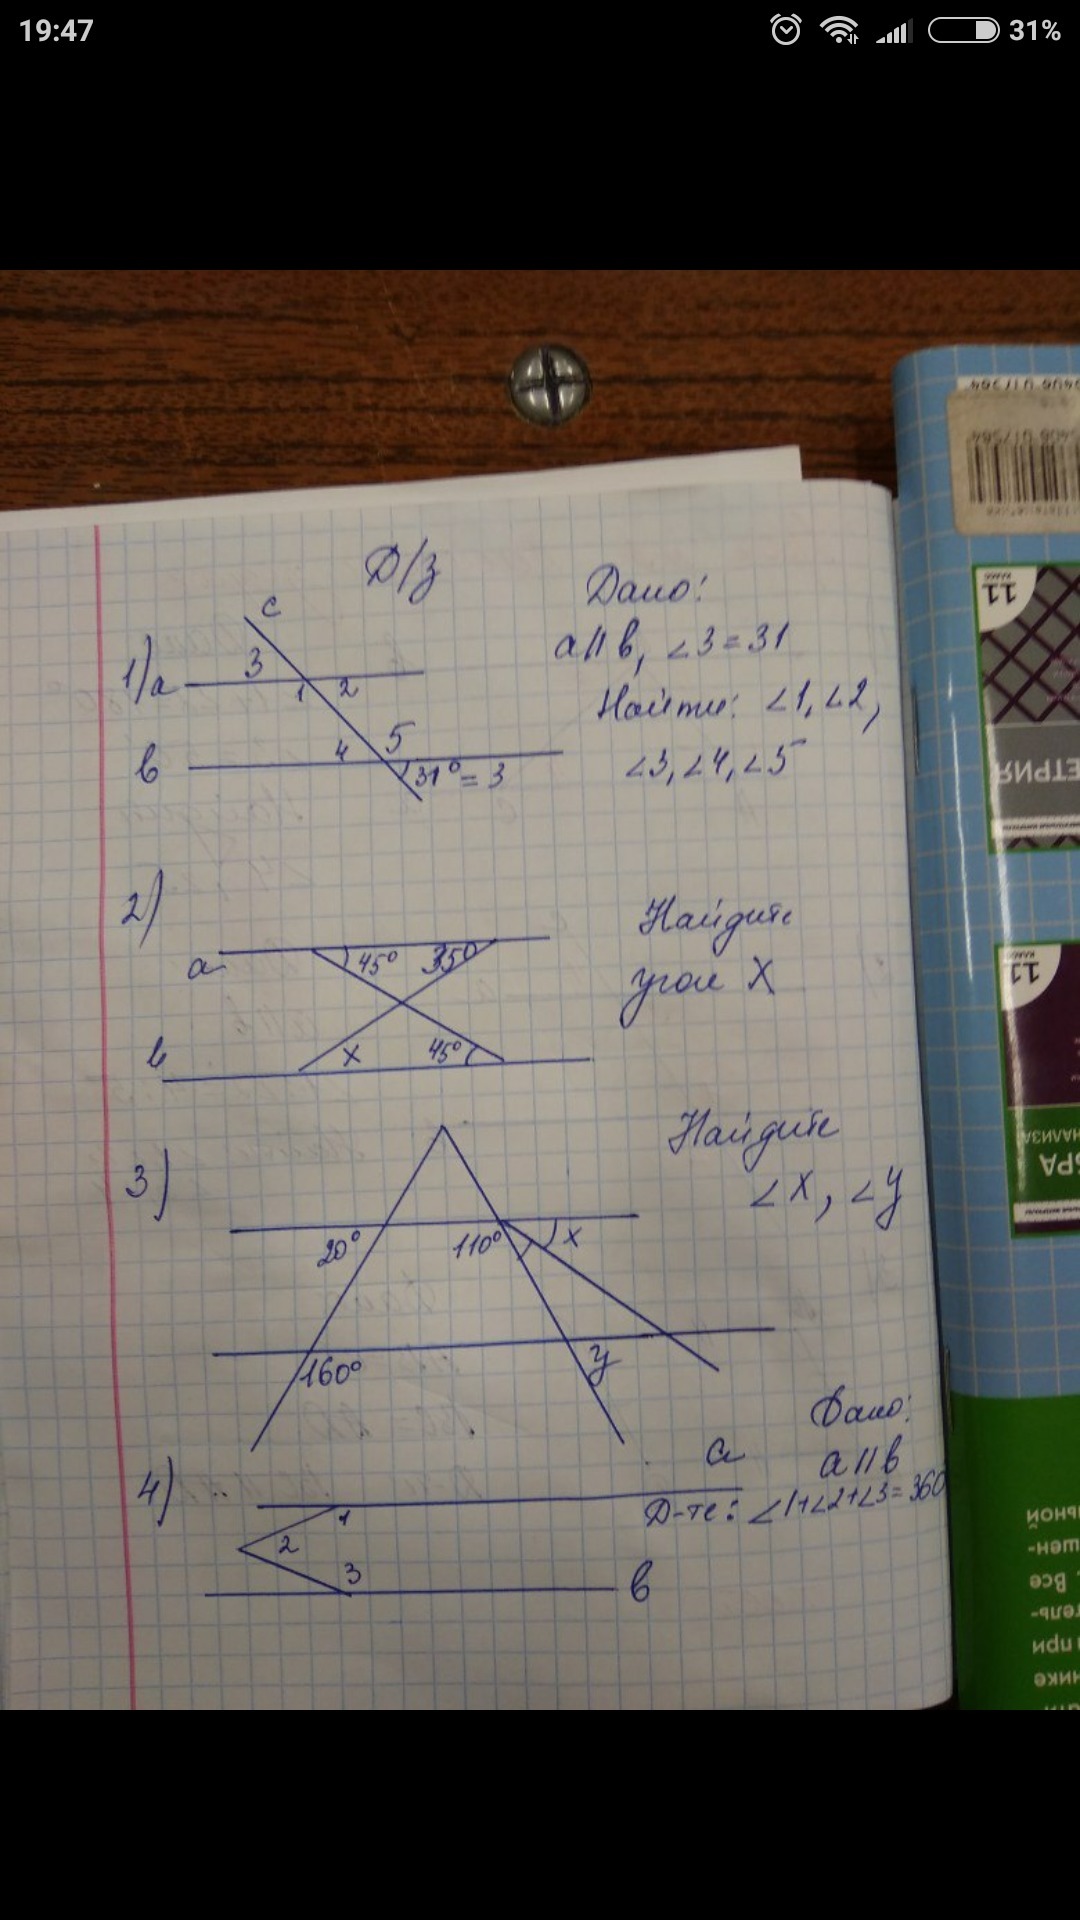 19:47
31%
Д/з
Дано:
a || b, ∠3 = 31
Найти: ∠1, ∠2,
∠3, ∠4, ∠5
1)
c
3
a
1
2
4
5
b
31° = 3
2)
Найдите
угол X
a
45°
350
b
x
45°
3)
Найдите
∠X, ∠y
20°
110°
x
160°
y
4)
Дано:
a || b
Д-те: ∠1+∠2+∠3=360
a
1
2
3
b
11
КЛАСС
ЕТРИЯ
11
КЛАСС
НАЛИЗА
БРА
ьной
шен-
Все
тель-
при
нике